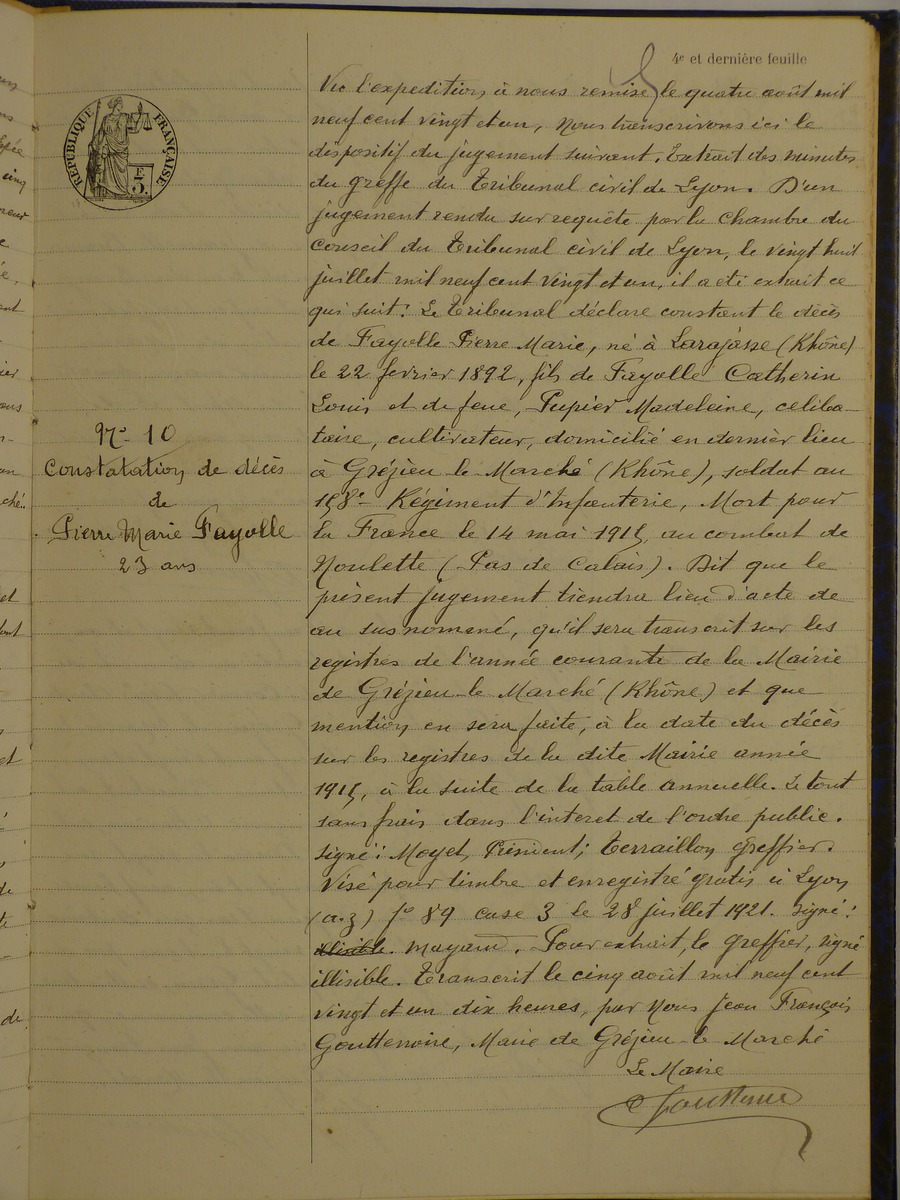 4e et dernière feuille
RÉPUBLIQUE FRANÇAISE
E
3.
Nº 10
Constatation de décès
de
Pierre Marie Fayolle
23 ans
Vu l'expedition à nous remise le quatre août mil
neuf cent vingt et un, nous transcrivons ici le
dispositif du jugement suivant. Extrait des minutes
du greffe du Tribunal civil de Lyon. D'un
jugement rendu sur requête par la chambre du
conseil du Tribunal civil de Lyon, le vingt huit
juillet mil neuf cent vingt et un, il a été extrait ce
qui suit: Le Tribunal déclare constant le décès
de Fayolle Pierre Marie, né à Larajasse (Rhône)
le 22 fevrier 1892, fils de Fayolle Catherin
Louis et de feue, Pupier Madeleine, celiba-
taire, cultivateur, domicilié en dernier lieu
à Grézieu le Marché (Rhône), soldat au
158e Régiment d'Infanterie, Mort pour
la France le 14 mai 1915, au combat de
Noulette (Pas de Calais). Dit que le
présent jugement tiendra lieu d'acte de
au susnommé, qu'il sera transcrit sur les
registres de l'année courante de la Mairie
de Grézieu-le Marché (Rhône) et que
mention en sera faite, à la date du décès
sur les registres de la dite Mairie année
1915, à la suite de la table annuelle. Le tout
sans frais dans l'interet de l'ordre public.
Signé: Moyet, Président; Terraillon greffier.
Visé pour timbre et enregistré gratis à Lyon
(a.j) fo 89 case 3 le 28 juillet 1921. Signé:
illisible. Mayaud. Pour extrait, le Greffier, signé
illisible. Transcrit le cinq août mil neuf cent
vingt et un dix heures, par Nous Jean François
Gouttenoire, Maire de Grézieu-le Marché
Le Maire
Gouttenoire